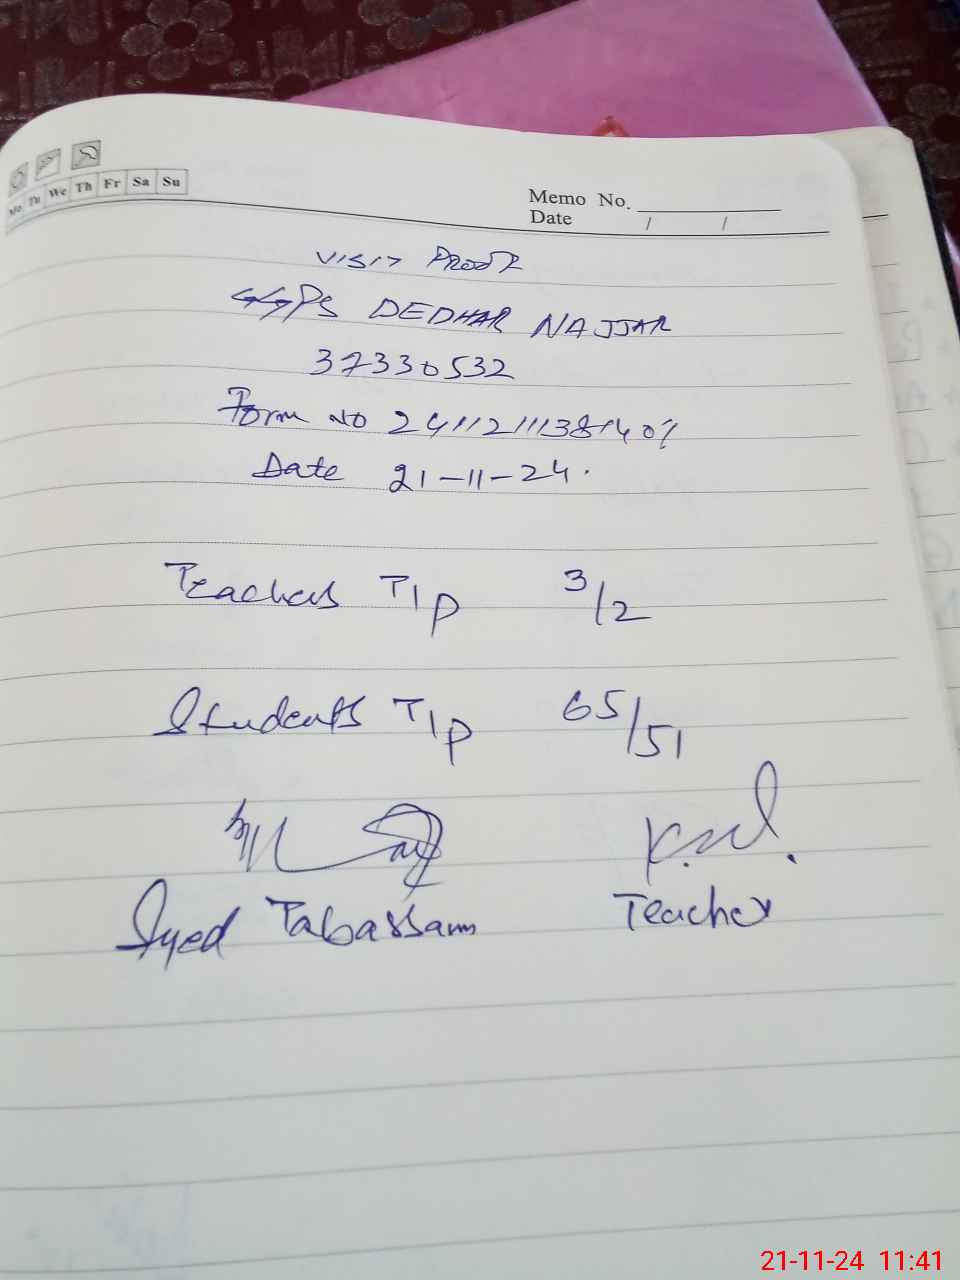 Mo Tu We Th Fr Sa Su
Memo No.
Date / /
VISIT PROOF
GGPS DEDHAR NAJJAR
37330532
Form NO
Date 21-11-24.
Teachers T/P 3/2
Students T/P 65/51
Syed Tabassam
Teacher
21-11-24 11:41